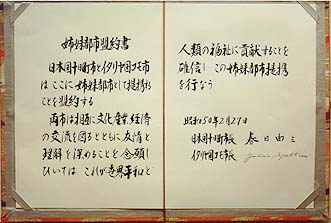 姉妹都市盟約書
日本国十日町市とイタリヤ国コモ市
はここに姉妹都市として提携する
ことを盟約する
両市は相互に文化、産業、経済
の交流を図るとともに友情と
理解を深めることを念願し
ひいては これが世界平和と
人類の福祉に貢献することを
確信し この姉妹都市提携
を行なう
昭和50年2月27日
日本国十日町市長 春日由三
イタリヤ国コモ市長